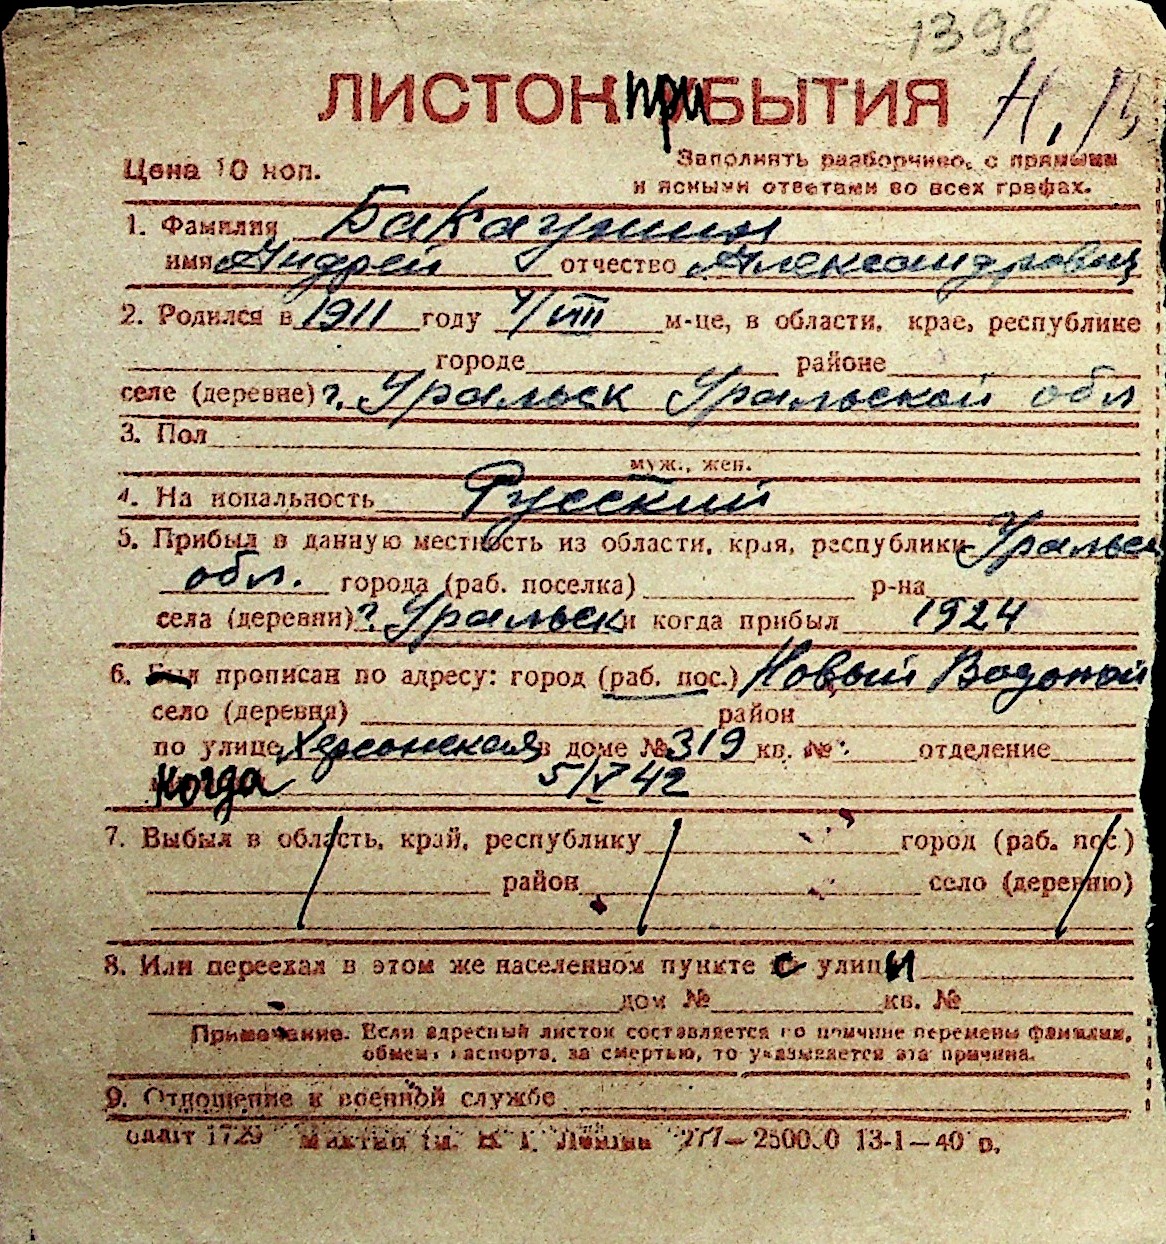 1398
ЛИСТОК при БЫТИЯ Н.
Цена 10 коп.
Заполнять разборчиво, с прямыми
и ясными ответами во всех графах.
1. Фамилия Бакаушин
имя Андрей отчество Александрович
2. Родился в 1911 году 4/VIII м-це, в области, крае, республике
городе районе
селе (деревне) г. Уральск Уральской обл
3. Пол
муж., жен.
4. На иональность Русский
5. Прибыл в данную местность из области, края, республики Уральск
обл. города (раб. поселка) р-на
села (деревни) г. Уральск и когда прибыл 1924
6. Был прописан по адресу: город (раб. пос.) Новый Водопой
село (деревня) район
по улице Херсонская в доме № 319 кв. № отделение
когда 5/V 42
7. Выбыл в область, край, республику город (раб. пос.)
район село (деревню)
8. Или переехал в этом же населенном пункте с улицы
дом № кв. №
Примечание. Если адресный листок составляется по причине перемены фамилии,
обмена паспорта, за смертью, то указывается эта причина.
9. Отношение к военной службе
1729 им. Ленина 277—2500.0 13-1—40 р.